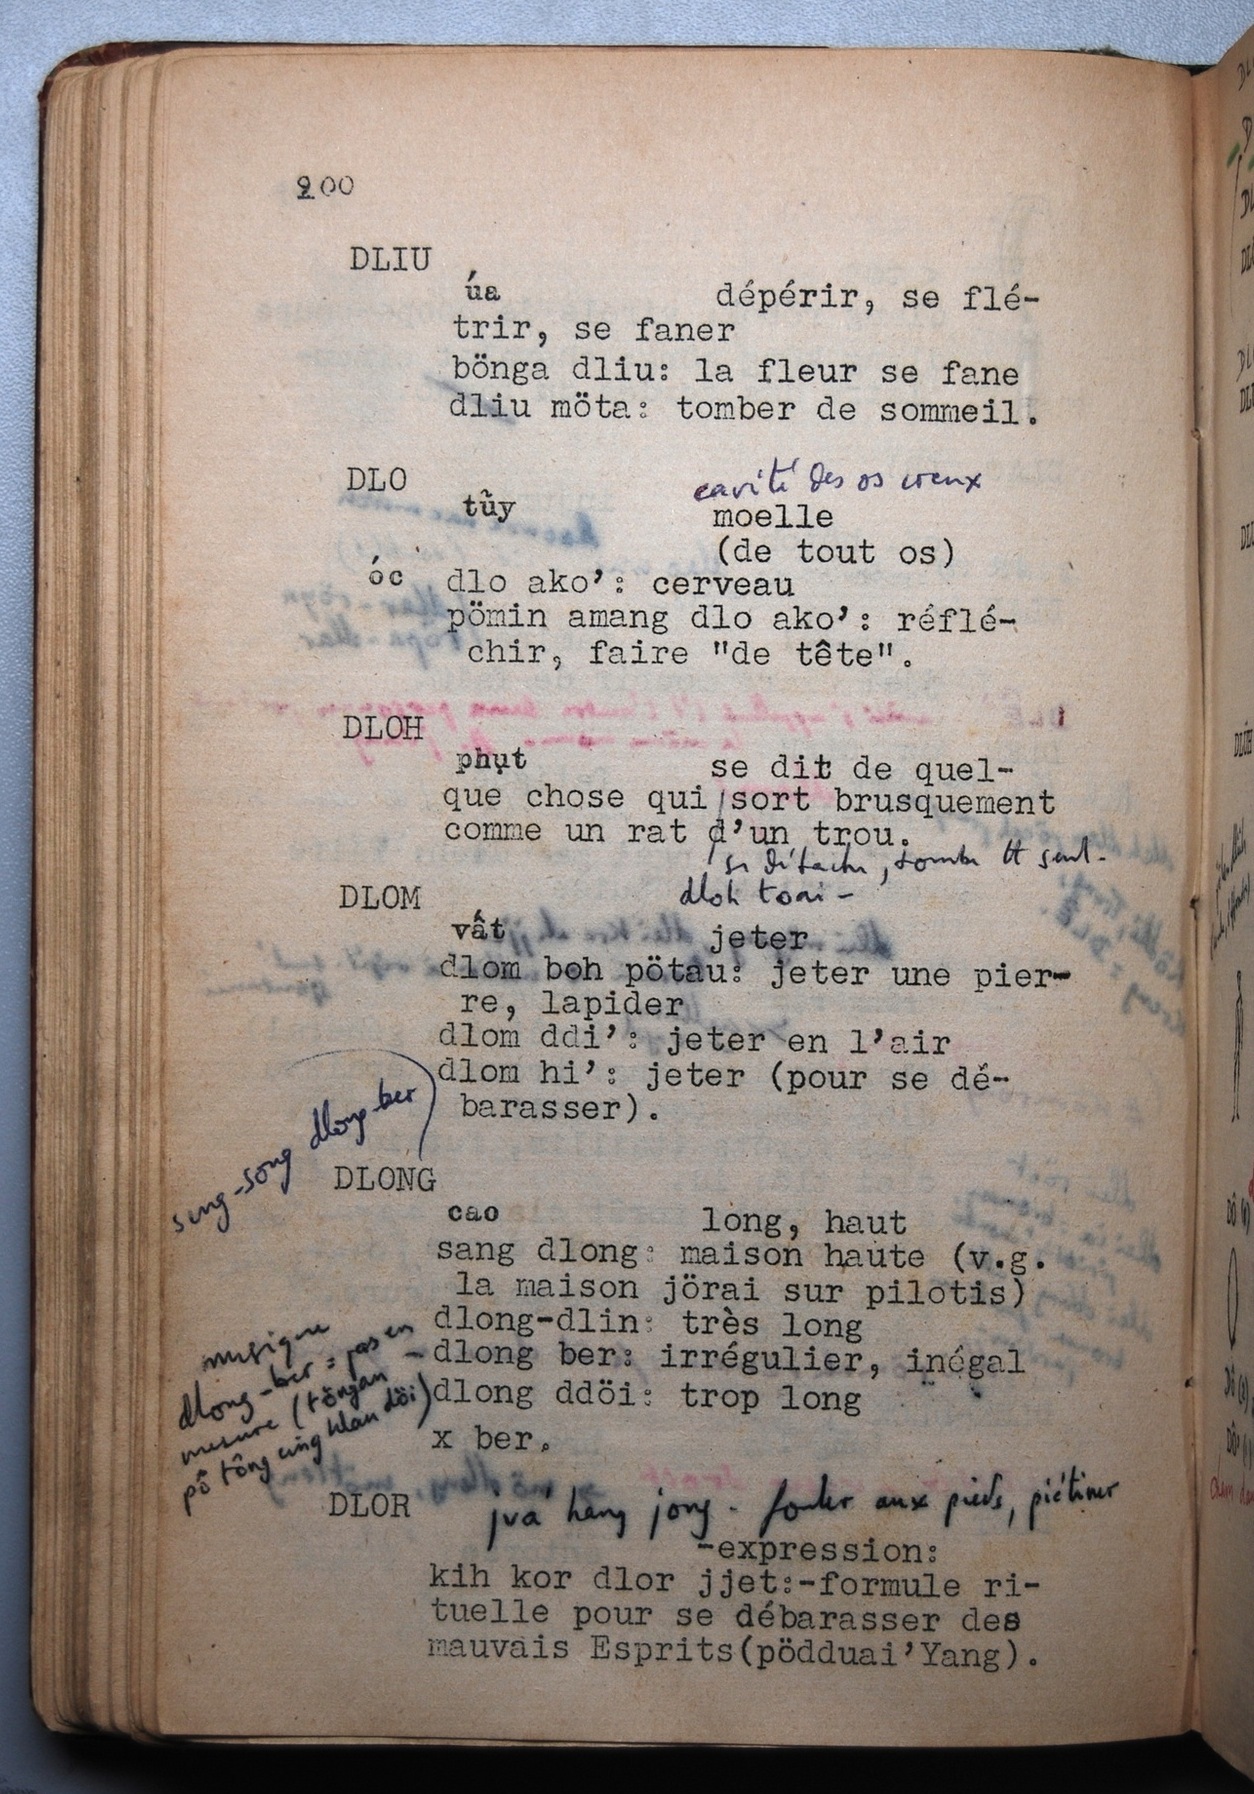 200
DLIU
úa dépérir, se flé-
trir, se faner
bönga dliu: la fleur se fane
dliu möta: tomber de sommeil.
DLO
cavité des os creux
tủy moelle
(de tout os)
óc dlo ako’: cerveau
pömin amang dlo ako’: réflé-
chir, faire "de tête".
DLOH
phụt se dit de quel-
que chose qui sort brusquement
comme un rat d’un trou.
se détache, tombe tt seul-
dloh toai -
DLOM
vất jeter
dlom boh pötau: jeter une pier-
re, lapider
dlom ddi’: jeter en l’air
dlom hi’: jeter (pour se dé-
barasser).
sung-song dlong-ber
DLONG
cao long, haut
sang dlong: maison haute (v.g.
la maison jörai sur pilotis)
dlong-dlin: très long
- dlong ber: irrégulier, inégal
dlong ddöi: trop long
x ber.
musique
dlong-ber = pas en
mesure (töngan
pô tông cing klan döi)
DLOR
jua hang jong - fouler aux pieds, piétiner
-expression:
kih kor dlor jjet:-formule ri-
tuelle pour se débarasser des
mauvais Esprits(pödduai’Yang).